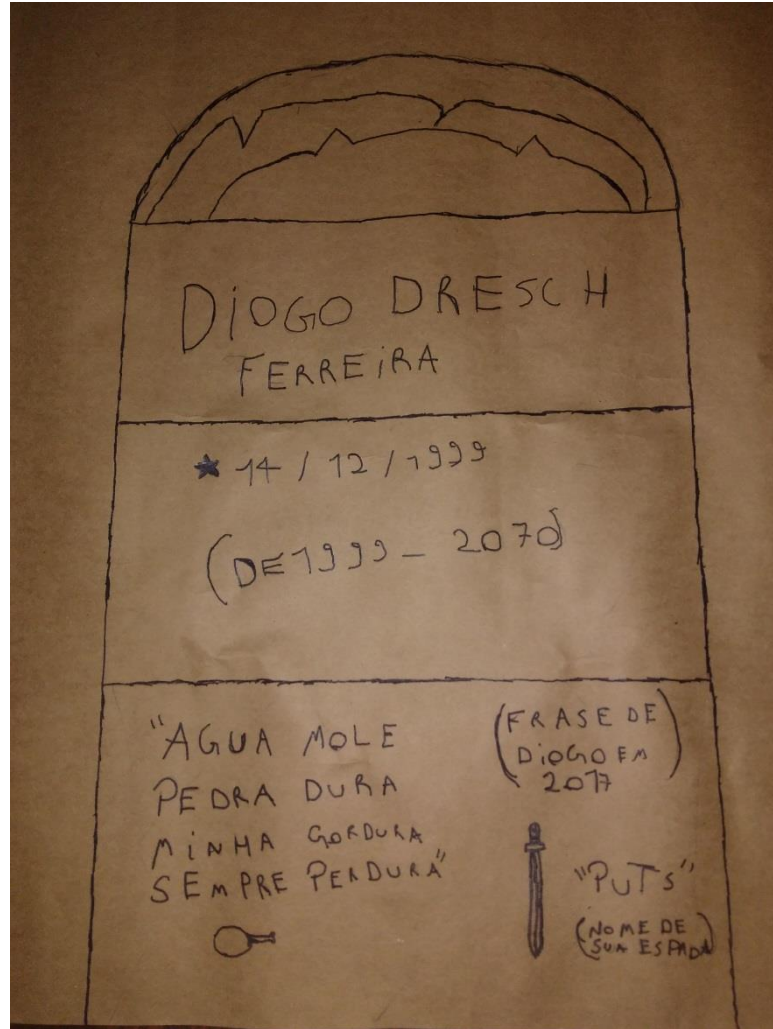 DiOGO DRESCH
FERREiRA
★ 14 / 12 / 1999
(DE 1999 - 2070)
"AGUA MOLE
PEDRA DURA
MiNHA GORDURA
SEMPRE PERDURA"
(FRASE DE
DiOGO EM
2017)
"PUTS"
(NOME DE
SUA ESPADA)